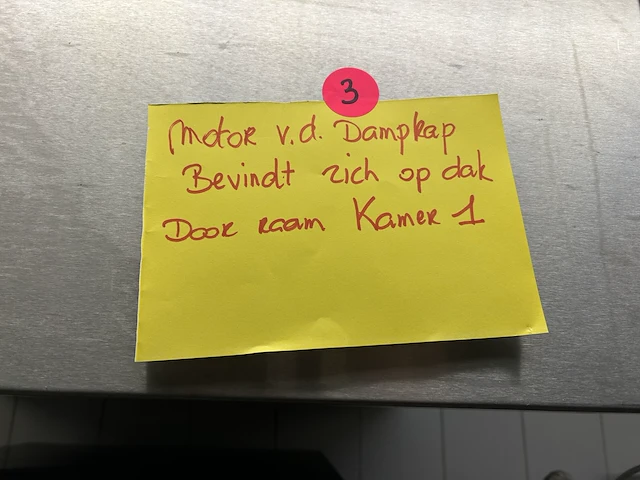 3
Motor v.d. Dampkap
Bevindt zich op dak
Door raam Kamer 1